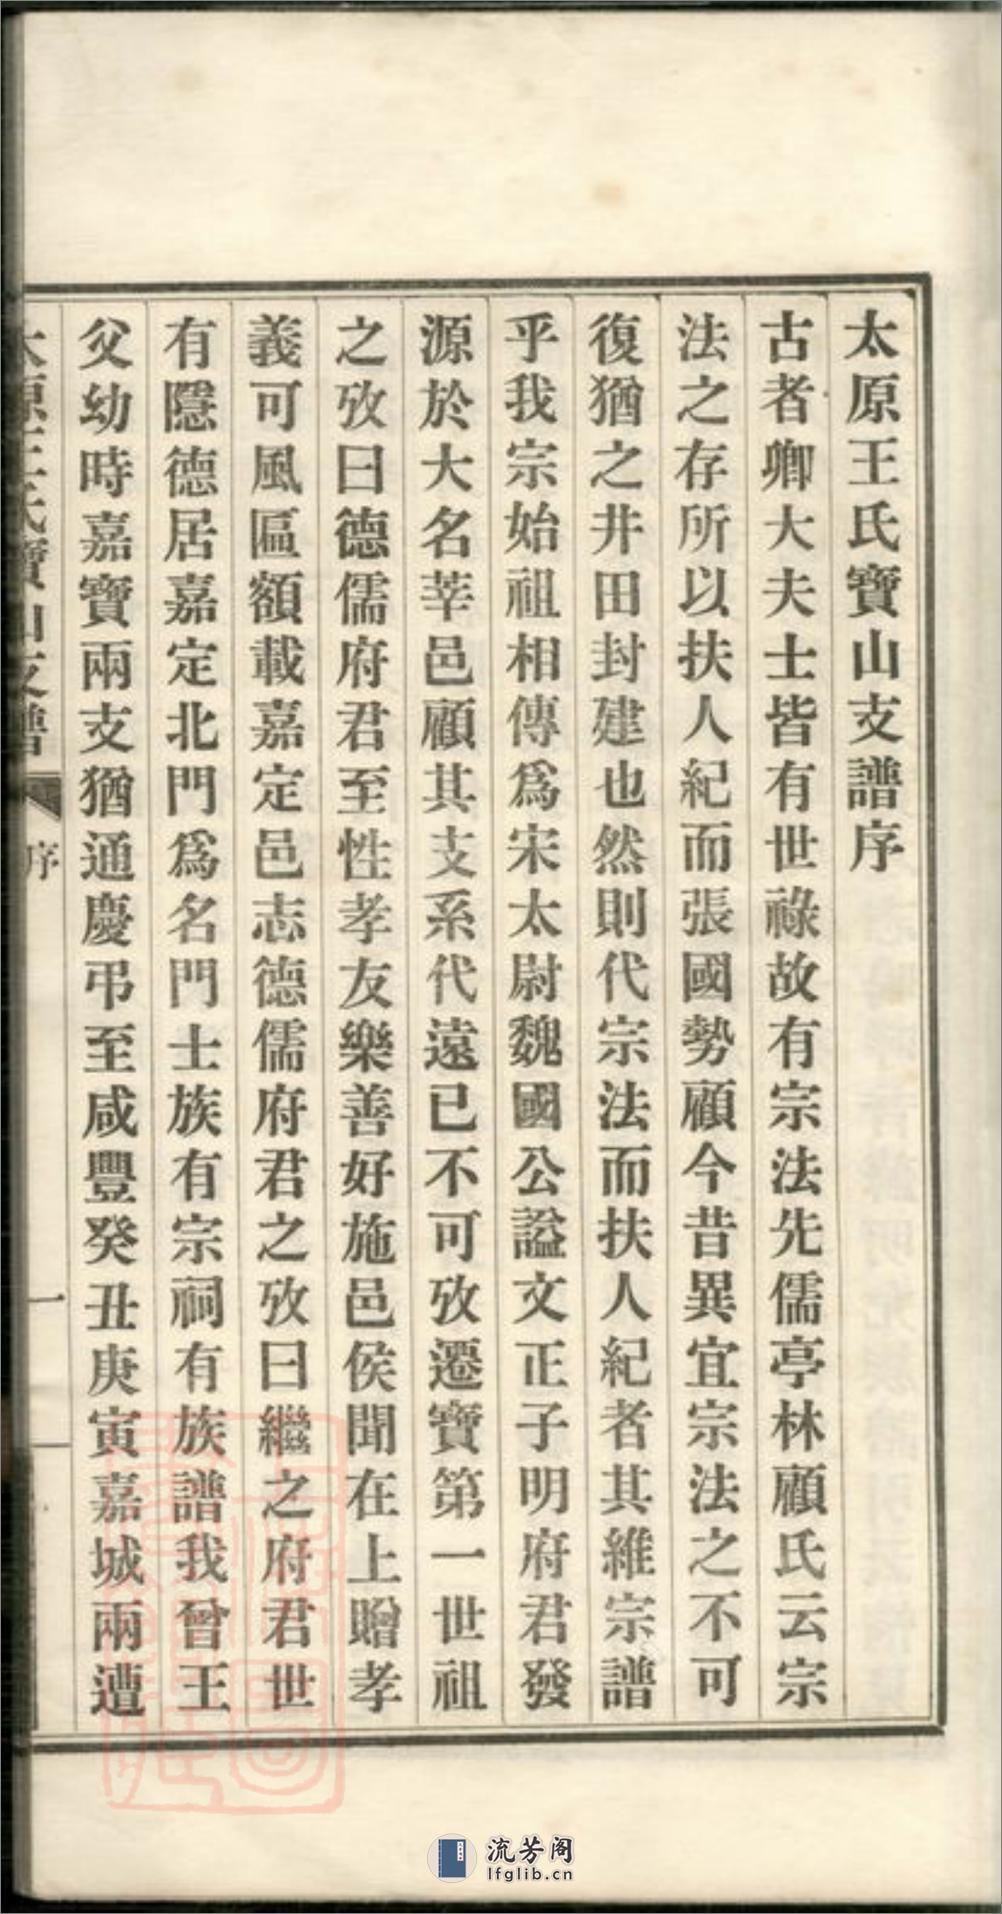 太原王氏寶山支譜序
古者卿大夫士皆有世祿故有宗法先儒亭林顧氏云宗
法之存所以扶人紀而張國勢顧今昔異宜宗法之不可
復猶之井田封建也然則代宗法而扶人紀者其維宗譜
乎我宗始祖相傳爲宋太尉魏國公謚文正子明府君發
源於大名莘邑顧其支系代遠已不可攷遷寶第一世祖
之攷曰德儒府君至性孝友樂善好施邑侯聞在上贈孝
義可風區額載嘉定邑志德儒府君之攷曰繼之府君世
有隱德居嘉定北門爲名門士族有宗祠有族譜我曾王
父幼時嘉寶兩支猶通慶弔至咸豐癸丑庚寅嘉城兩遭
太原王氏寶山支譜 序 一
流芳阁
lfglib.cn